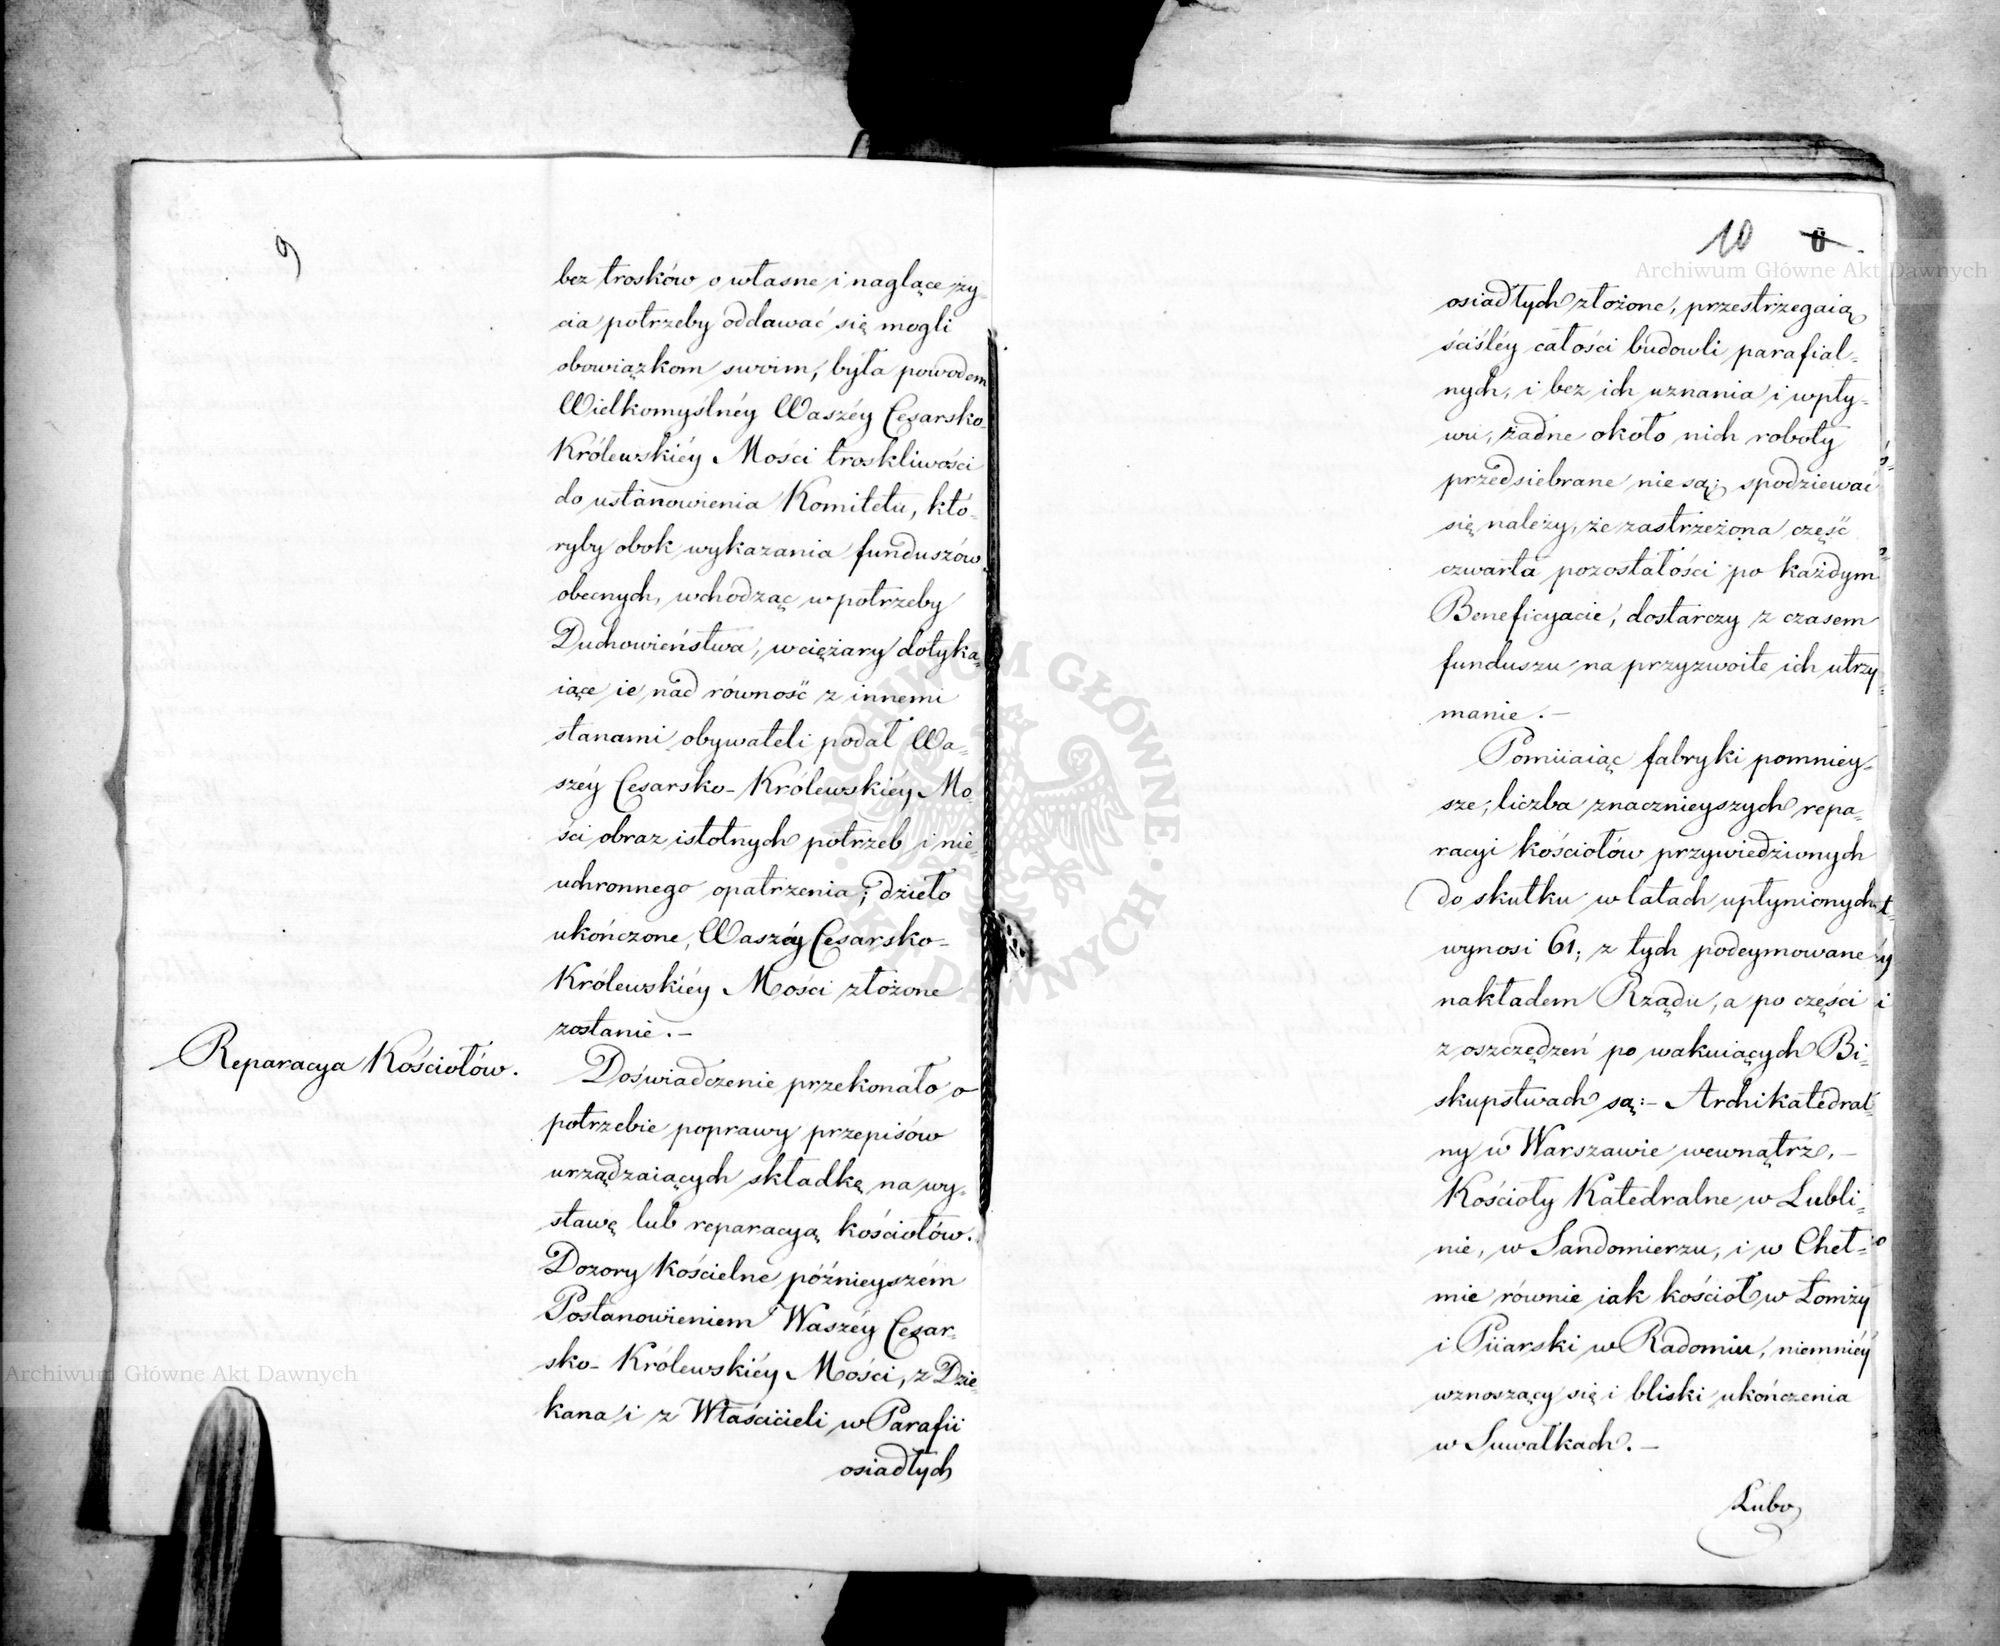 9
bez trosków o własne i naglące ży-
cia potrzeby oddawać się mogli
obowiązkom swoim, była powodem
Wielkomyślnéy Waszéy Cesarsko-
Królewskiéy Mości troskliwości
do ustanowienia Komitetu, któ-
ryby obok wykazania funduszów
obecnych, wchodząc w potrzeby
Duchowieństwa, w ciężary dotyka-
iące ie nad równość z innemi
stanami obywateli podał Wa-
széy Cesarsko-Królewskiéy Mo-
ści obraz istotnych potrzeb i nie-
uchronnego opatrzenia; dzieło
ukończone, Waszéy Cesarsko-
Królewskiéy Mości złożone
zostanie.-
Reparacya Kościołów.
Doświadczenie przekonało o
potrzebie poprawy przepisów
urządzaiących składkę na wy-
stawę lub reparacyą kościołów.
Dozory Kościelne późnieyszém
Postanowieniem Waszéy Cesar-
sko-Królewskiéy Mości, z Dzie-
kana i z Właścicieli w Parafii
osiadłych
10
osiadłych złożone, przestrzegaią
ściśléy całości budowli parafial-
nych, i bez ich uznania i wpły-
wu, żadne około nich roboty
przedsiebrane nie są; spodziewać
się należy, że zastrzeżona część
czwarta pozostałości po każdym
Beneficyacie, dostarczy z czasem
funduszu na przyzwoite ich utrzy-
manie.-
Pomiiaiąc fabryki pomniey-
sze, liczba znacznieyszych repa-
racyi kościołów przywiedzionych
do skutku w latach upłynionych
wynosi 61; z tych podeymowane
nakładem Rządu, a po części
z oszczędzeń po wakuiących Bi-
skupstwach są:- Archikatedral-
ny w Warszawie wewnątrz,-
Kościoły Katedralne w Lubli-
nie, w Sandomierzu, i w Cheł-
mie równie iak kościoł w Łomży
i Piiarski w Radomiu, niemniéy
wznoszący się i bliski ukończenia
w Suwałkach.-
Lubo
Archiwum Główne Akt Dawnych
Archiwum Główne Akt Dawnych
ARCHIWUM GŁÓWNE AKT DAWNYCH